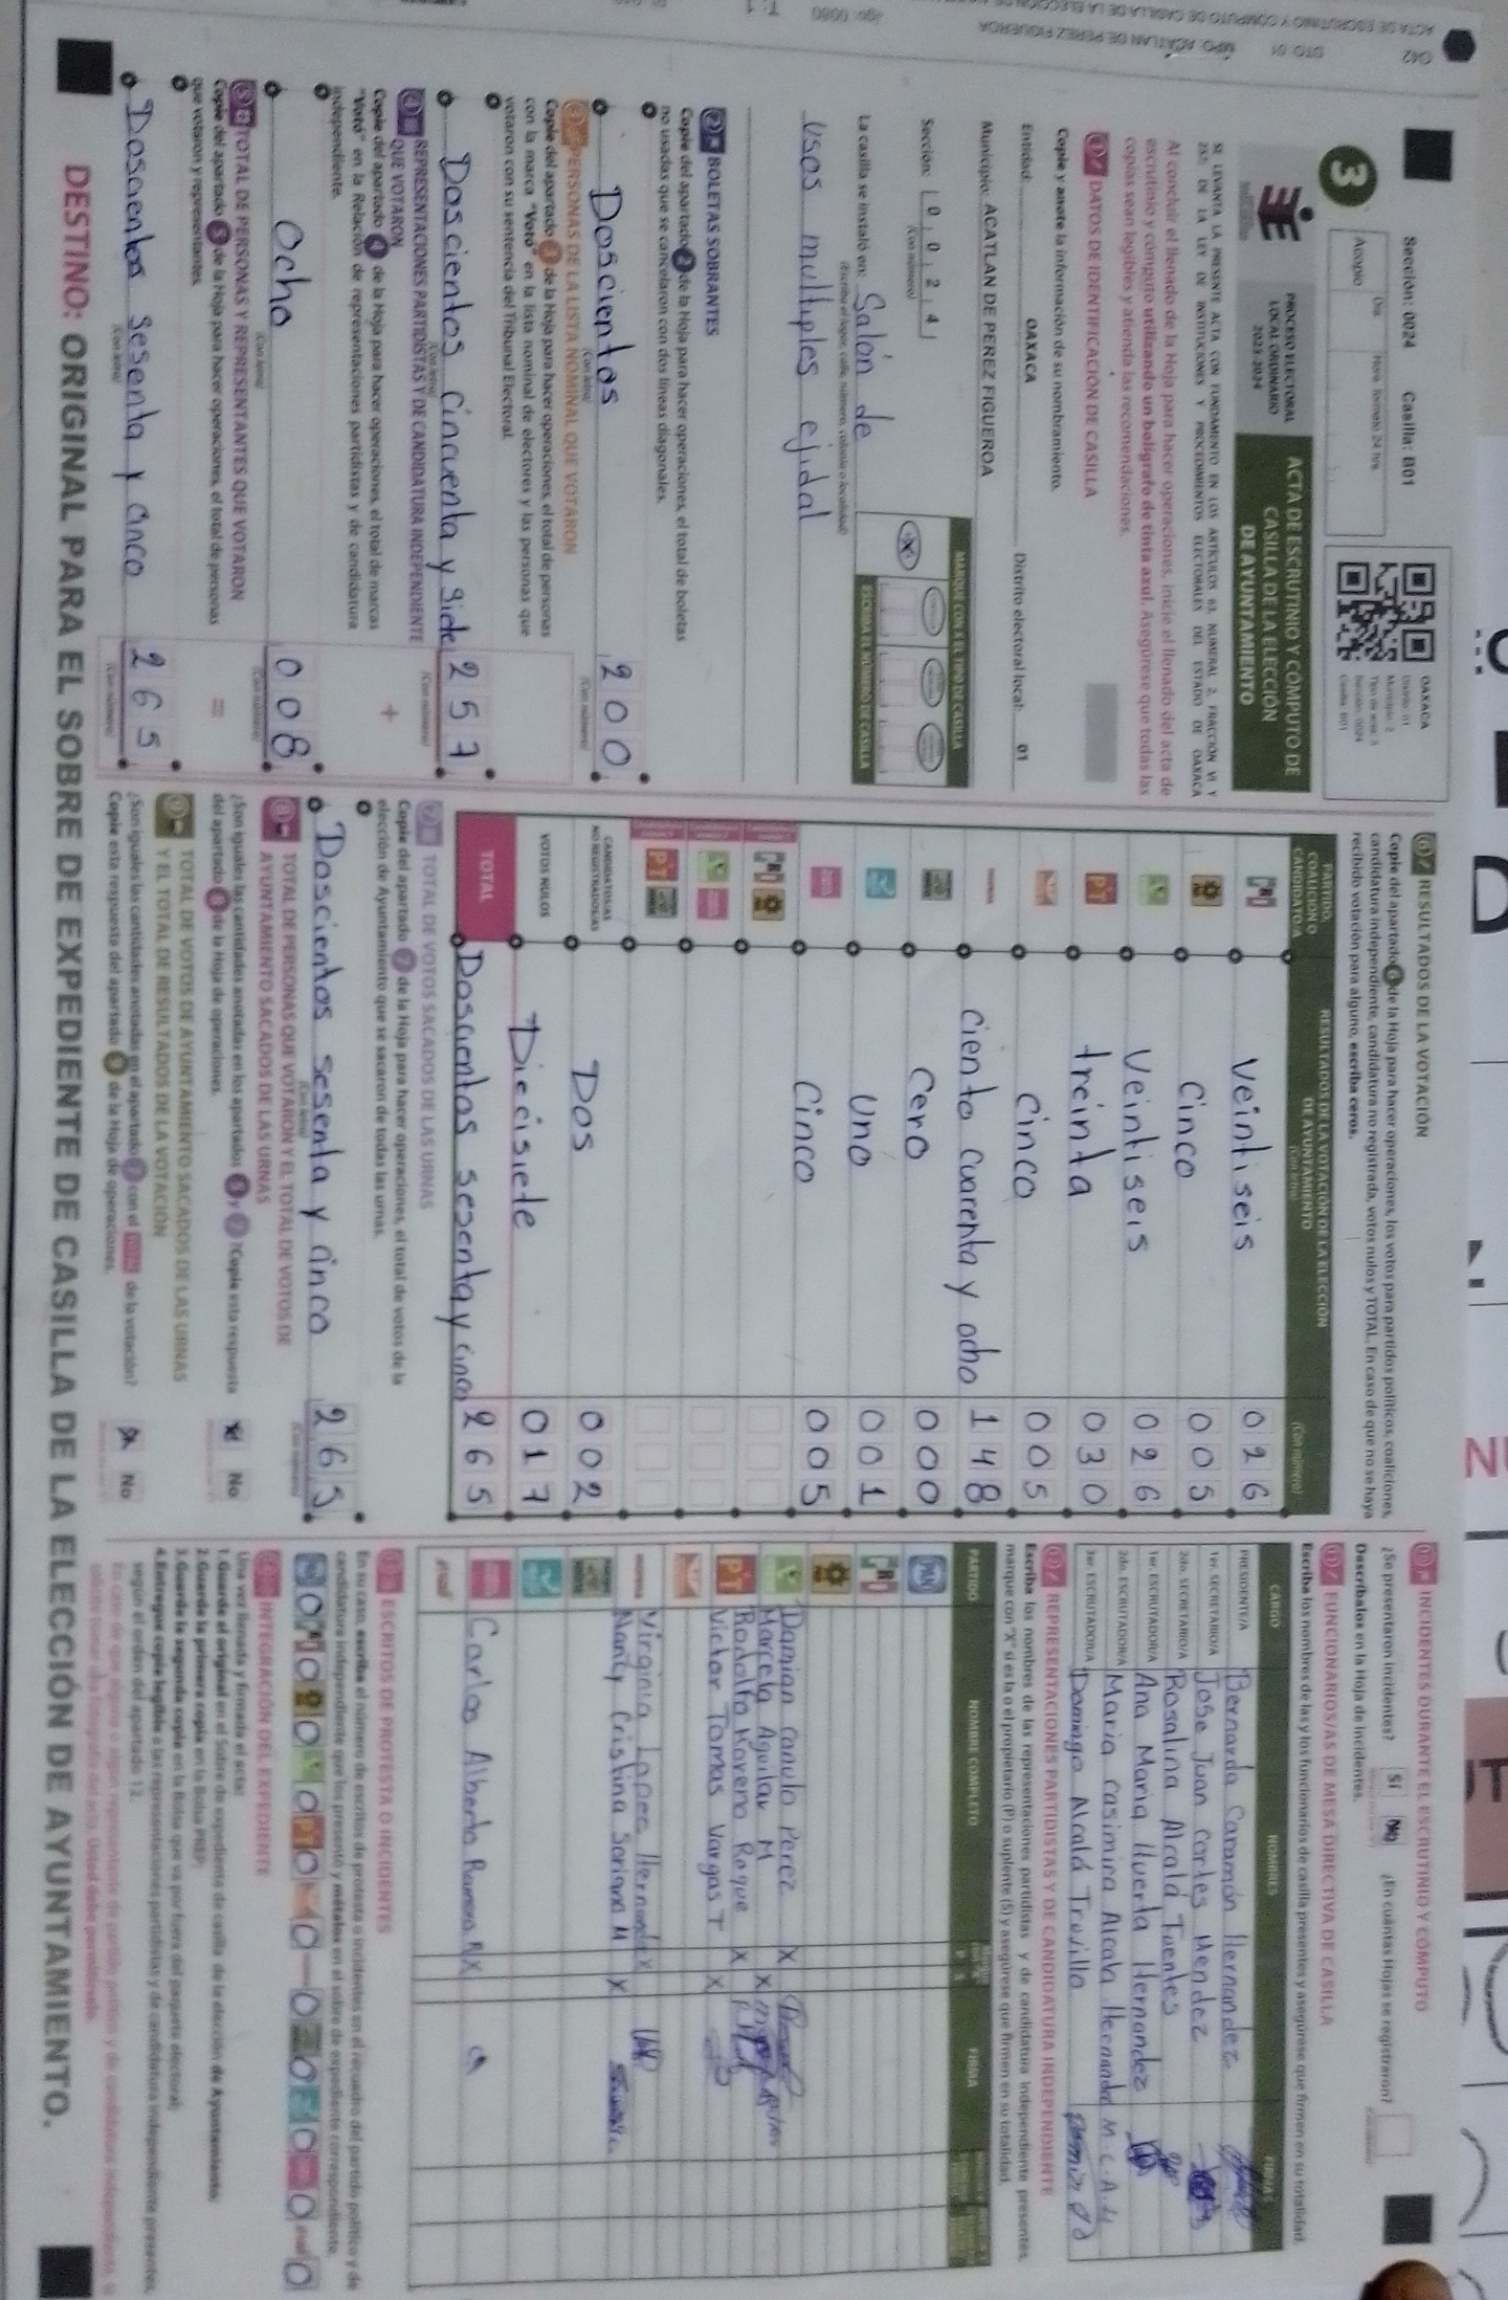 Sección: 0024 Casilla: B01
OAXACA
3
Acopio
Día
Hora formato 24 hrs
PROCESO ELECTORAL
LOCAL ORDINARIO
2023-2024
ACTA DE ESCRUTINIO Y CÓMPUTO DE
CASILLA DE LA ELECCIÓN
DE AYUNTAMIENTO
Al concluir el llenado de la Hoja para hacer operaciones, inicie el llenado del acta de
escrutinio y cómputo utilizando un bolígrafo de tinta azul. Asegúrese que todas las
copias sean legibles y atienda las recomendaciones.
1 DATOS DE IDENTIFICACIÓN DE CASILLA
Copie y anote la información de su nombramiento.
Entidad: OAXACA Distrito electoral local: 01
Municipio: ACATLAN DE PEREZ FIGUEROA
Sección: 0 0 2 4
(Con número)
MARQUE CON X EL TIPO DE CASILLA
X
ESCRIBA EL NÚMERO DE CASILLA
La casilla se instaló en: Salón de
(Escriba el lugar, calle, número, colonia o localidad)
Usos multiples ejidal
2 BOLETAS SOBRANTES
Copie del apartado 2 de la Hoja para hacer operaciones, el total de boletas
no usadas que se cancelaron con dos líneas diagonales.
Doscientos 200
(Con letra) (Con número)
3 PERSONAS DE LA LISTA NOMINAL QUE VOTARON
Copie del apartado 3 de la Hoja para hacer operaciones, el total de personas
con la marca "Votó" en la lista nominal de electores y las personas que
votaron con su sentencia del Tribunal Electoral.
Doscientos cincuenta y siete 257
(Con letra) (Con número)
4 REPRESENTACIONES PARTIDISTAS Y DE CANDIDATURA INDEPENDIENTE
QUE VOTARON
+
Copie del apartado 4 de la Hoja para hacer operaciones, el total de marcas
"Votó" en la Relación de representaciones partidistas y de candidatura
independiente.
Ocho 008
(Con letra) (Con número)
5 TOTAL DE PERSONAS Y REPRESENTANTES QUE VOTARON
=
Copie del apartado 5 de la Hoja para hacer operaciones, el total de personas
que votaron y representantes.
Doscientos sesenta y cinco 265
(Con letra) (Con número)
6 RESULTADOS DE LA VOTACIÓN
Copie del apartado 6 de la Hoja para hacer operaciones, los votos para partidos políticos, coaliciones,
candidatura independiente, candidatura no registrada, votos nulos y TOTAL. En caso de que no se haya
recibido votación para alguno, escriba ceros.
PARTIDO,
COALICIÓN O
CANDIDATO/A
RESULTADOS DE LA VOTACIÓN DE LA ELECCIÓN
DE AYUNTAMIENTO
(Con letra) (Con número)
PRI Veintiseis 026
Cinco 005
Veintiseis 026
PT treinta 030
Cinco 005
Ciento cuarenta y ocho 148
Cero 000
Uno 001
Cinco 005
CANDIDATOS/AS
NO REGISTRADOS/AS Dos 002
VOTOS NULOS Diecisiete 017
TOTAL Doscientos sesenta y cinco 265
7 TOTAL DE VOTOS SACADOS DE LAS URNAS
Copie del apartado 7 de la Hoja para hacer operaciones, el total de votos de la
elección de Ayuntamiento que se sacaron de todas las urnas.
Doscientos sesenta y cinco 265
(Con letra) (Con número)
8 TOTAL DE PERSONAS QUE VOTARON Y EL TOTAL DE VOTOS DE
AYUNTAMIENTO SACADOS DE LAS URNAS
¿Son iguales las cantidades anotadas en los apartados 5 y 7? Copie esta respuesta
del apartado 8 de la Hoja de operaciones.
No
9 TOTAL DE VOTOS DE AYUNTAMIENTO SACADOS DE LAS URNAS
Y EL TOTAL DE RESULTADOS DE LA VOTACIÓN
¿Son iguales las cantidades anotadas en el apartado 7 con el TOTAL de la votación?
Copie esta respuesta del apartado 9 de la Hoja de operaciones.
No
10 INCIDENTES DURANTE EL ESCRUTINIO Y CÓMPUTO
¿Se presentaron incidentes? SI No ¿En cuántas Hojas se registraron?
Descríbalos en la Hoja de incidentes.
11 FUNCIONARIOS/AS DE MESA DIRECTIVA DE CASILLA
Escriba los nombres de las y los funcionarios de casilla presentes y asegúrese que firmen en su totalidad
CARGO NOMBRES FIRMAS
PRESIDENTE/A Bernarda Caramón Hernandez
1er. SECRETARIO/A Jose Juan Cortes Mendez
2do. SECRETARIO/A Rosalina Alcalá Fuentes
1er. ESCRUTADOR/A Ana Maria Huerta Hernandez
2do. ESCRUTADOR/A Maria Casimira Alcala Hernandez M.C.A.H
3er. ESCRUTADOR/A Domingo Alcalá Trujillo
12 REPRESENTACIONES PARTIDISTAS Y DE CANDIDATURA INDEPENDIENTE
Escriba los nombres de las representaciones partidistas y de candidatura independiente presentes,
marque con "X" si es la o el propietario (P) o suplente (S) y asegúrese que firmen en su totalidad.
PARTIDO NOMBRE COMPLETO FIRMA
PAN
PRI
Damian Canulo Perez X
Marcela Aguilar M X
PT Rodolfo Moreno Roque X
Victor Tomas Vargas T X
Virginia Lopez Hernandez X
Nanty Cristina Soriano M X
Carlos Alberto Ramos R X
13 ESCRITOS DE PROTESTA O INCIDENTES
En su caso, escriba el número de escritos de protesta o incidentes en el recuadro del partido político y de
candidatura independiente que los presentó y métalos en el sobre de expediente correspondiente.
14 INTEGRACIÓN DEL EXPEDIENTE
Una vez llenada y firmada el acta:
1. Guarde el original en el Sobre de expediente de casilla de la elección de Ayuntamiento;
2. Guarde la primera copia en la Bolsa PREP;
3. Guarde la segunda copia en la Bolsa que va por fuera del paquete electoral;
4. Entregue copia legible a las representaciones partidistas y de candidatura independiente presentes,
según el orden del apartado 12.
DESTINO: ORIGINAL PARA EL SOBRE DE EXPEDIENTE DE CASILLA DE LA ELECCIÓN DE AYUNTAMIENTO.